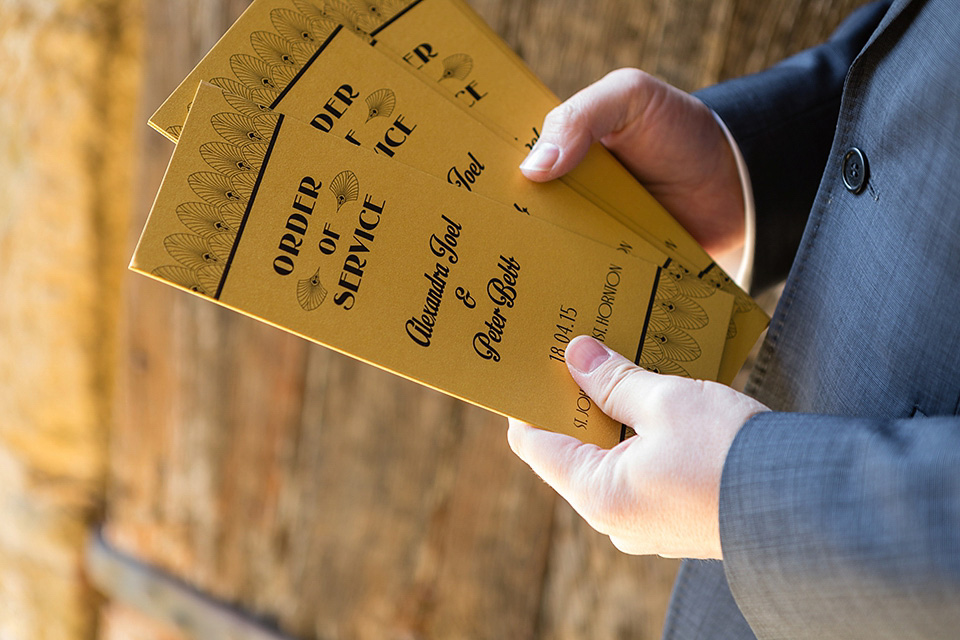 ORDER
OF
SERVICE
Alexandra Joel
&
Peter Bebb
18.04.15
ST. HORNION
DER
ICE
Joel
&